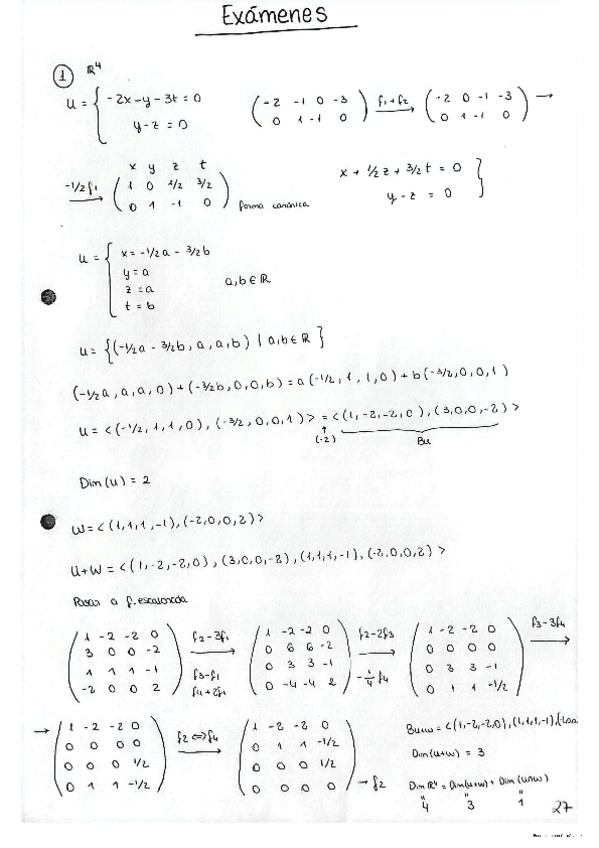 Exámenes
1 R⁴
U = { -2x-y-3t=0
y-z=0
(-2 -1 0 -3
0 1 -1 0) f1+f2 → (-2 0 -1 -3
0 1 -1 0) →
x y z t
-1/2 f1 → (1 0 1/2 3/2
0 1 -1 0) forma canónica
x + 1/2z + 3/2t = 0
y-z = 0 }
U = { x = -1/2a - 3/2b
y = a
z = a
t = b
a,b∈R
U = {(-1/2a - 3/2b, a, a, b) | a,b∈R}
(-1/2a, a, a, 0) + (-3/2b, 0, 0, b) = a(-1/2, 1, 1, 0) + b(-3/2, 0, 0, 1)
U = <(-1/2, 1, 1, 0), (-3/2, 0, 0, 1)> = <(1, -2, -2, 0), (3, 0, 0, -2)>
↑ (-2) Bu
Dim(U) = 2
W = <(1, 1, 1, -1), (-2, 0, 0, 2)>
U+W = <(1, -2, -2, 0), (3, 0, 0, -2), (1, 1, 1, -1), (-2, 0, 0, 2)>
Pasar a f. escalonada
(1 -2 -2 0
3 0 0 -2
1 1 1 -1
-2 0 0 2)
f2-3f1 → f3-f1 f4+2f1
(1 -2 -2 0
0 6 6 -2
0 3 3 -1
0 -4 -4 2)
f2-2f3 → -1/4 f4
(1 -2 -2 0
0 0 0 0
0 3 3 -1
0 1 1 -1/2)
f3-3f4 →
→ (1 -2 -2 0
0 0 0 0
0 0 0 1/2
0 1 1 -1/2)
f2⇔f4 →
(1 -2 -2 0
0 1 1 -1/2
0 0 0 1/2
0 0 0 0) → f2
Bu+w = <(1, -2, -2, 0), (1, 1, 1, -1),
Dim(U+W) = 3
Dim R⁴ = Dim(U+W) + Dim(U∩W)
" " "
4 3 1
27